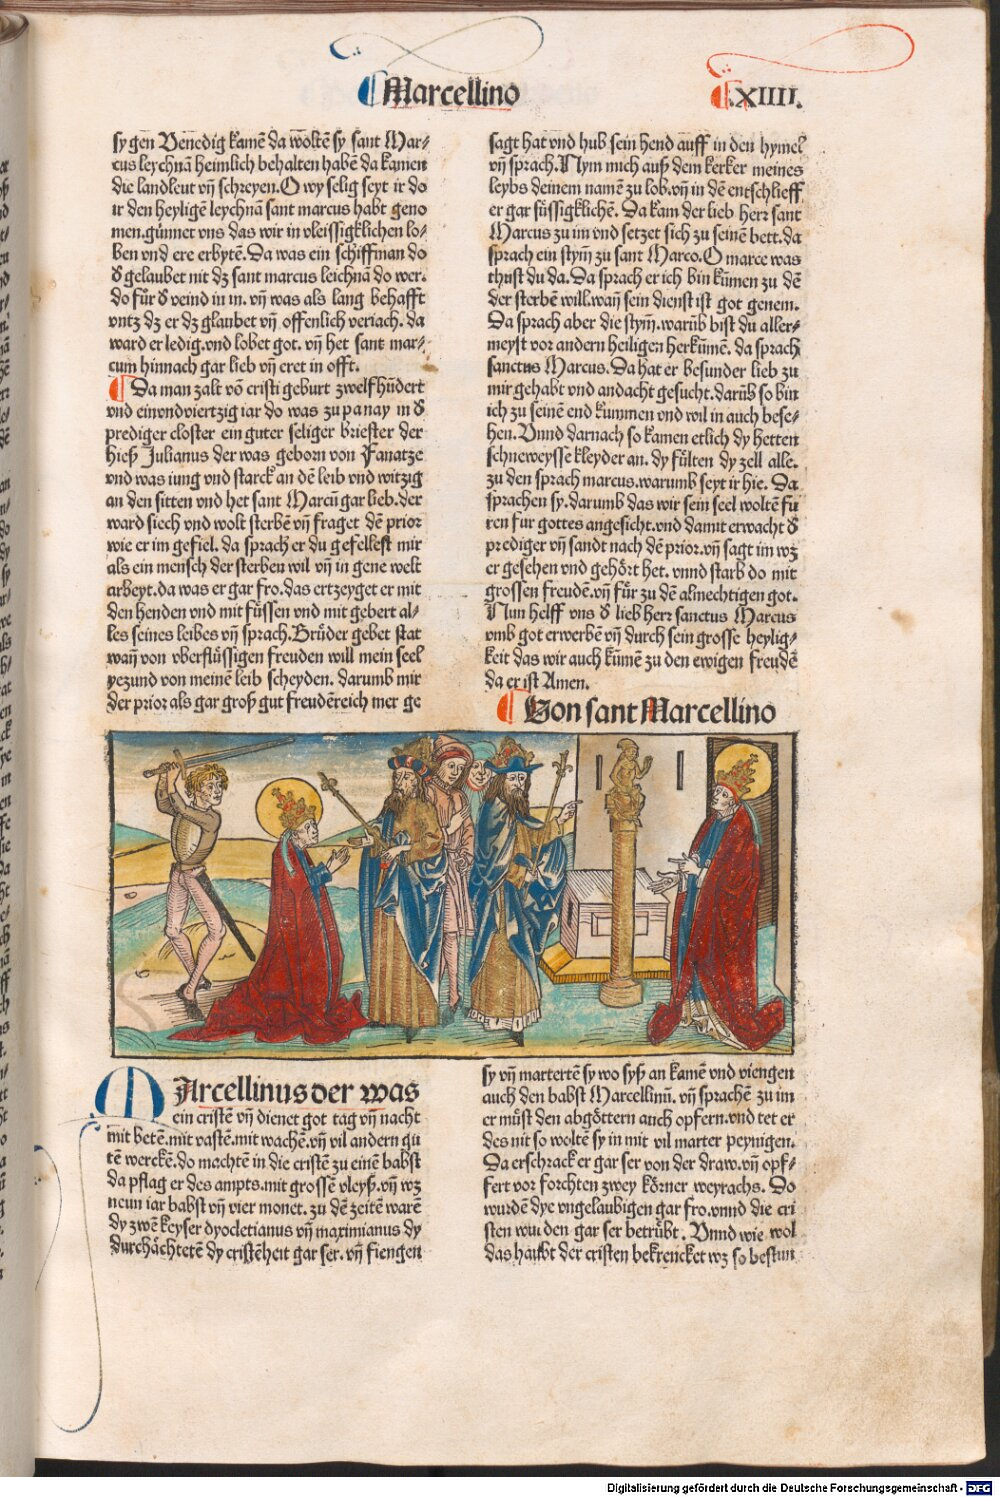 Marcellino
.XIIII.
sy gen Venedig kamē da woltē sy sant Mar⸗
cus leychnā heimlich behalten habē da kamen
die landleut vn̄ schreyen. O wy selig seyt ir do
ir den heyligē leychnā sant marcus habt geno
men. günnet vns das wir in vleissigklichen lo⸗
ben vnd ere erbytē. Da was ein schiffman do
d̕ gelaubet nit dz sant marcus leichnā do wer.
do fůr d̕ veind in in. vn̄ was als lang behafft
vntz dz er dz glaubet vn̄ offenlich veriach. da
ward er ledig. vnd lobet got. vn̄ het sant mar⸗
cum hinnach gar lieb vn̄ eret in offt.
Da man zalt vō cristi geburt zwelfhūdert
vnd einvndviertzig iar do was zu panay in d̕
prediger closter ein guter seliger briester der
hieß Julianus der was geborn von Fanatze
vnd was iung vnd starck an dē leib vnd witzig
an den sitten vnd het sant Marcū gar lieb. der
ward siech vnd wolt sterbē vn̄ fraget dē prior
wie er im gefiel. da sprach er du gefellest mir
als ein mensch der sterben wil vn̄ in gene welt
arbeyt. da was er gar fro. das ertzeyget er mit
den henden vnd mit füssen vnd mit gebert al⸗
les seines leibes vn̄ sprach. Brüder gebet stat
wan̄ von vberflüssigen freuden will mein seel
yezund von meinē leib scheyden. darumb mir
der prior als gar groß gut freudēreich mer ge
sagt hat vnd hub sein hend auff in den hymel
vn̄ sprach. Nym mich auß dem kerker meines
leybs deinem namē zu lob. vn̄ in dē entschlieff
er gar süssigklichē. Da kam der lieb herr sant
Marcus zu im vnd setzet sich zu seinē bett. da
sprach ein stym̄ zu sant Marco. O marce was
thust du da. Da sprach er ich bin kūmen zu dē
der sterbē will. wan̄ sein dienst ist got genem.
Da sprach aber die stym̄. warūb bist du aller⸗
meyst vor andern heiligen herkūmē. da sprach
sanctus Marcus. Da hat er besunder lieb zu
mir gehabt vnd andacht gesucht. darūb so bin
ich zu seinē end kummen vnd wil in auch bese⸗
hen. Vnnd darnach so kamen etlich dy hetten
schneweysse kleyder an. dy fülten dy zell alle.
zu den sprach marcus. warumb seyt ir hie. Da
sprachen sy. darumb das wir sein seel woltē fü
ren fur gottes angesicht. vnd damit erwacht d̕
prediger vn̄ sandt nach dē prior. vn̄ sagt im wz
er gesehen vnd gehört het. vnnd starb do mit
grossen freudē. vn̄ für zu dē almechtigen got.
Nun helff vns d̕ lieb herr sanctus Marcus
vmb got erwerbē vn̄ durch sein grosse heylig⸗
keit das wir auch kūmē zu den ewigen freudē
da er ist Amen.
Von sant Marcellino
MArcellinus der was
ein cristē vn̄ dienet got tag vn̄ nacht
mit betē. mit vastē. mit wachē. vn̄ vil andern gū
tē werckē. do machtē in die cristē zu einē babst
da pflag er des ampts. mit grossē vleyß. vn̄ wz
neun iar babst vn̄ vier monet. zu dē zeitē warē
dy zwē keyser dyocletianus vn̄ maximianus dy
durchächtetē dy cristēheit gar ser. vn̄ fiengen
sy vn̄ martertē sy wo syß an kamē vnd viengen
auch den babst Marcellinū. vn̄ sprachē zu im
er müst den abgöttern auch opfern. vnd tet er
des nit so woltē sy in mit vil marter peynigen.
Da erschrack er gar ser von der draw. vn̄ opf⸗
fert vor forchten zwey körner weyrachs. Do
wurdē dye vngelaubigen gar fro. vnnd die cri
sten wurden gar ser betrübt. Vnnd wie wol
das haubt der cristen bekrencket wz so bestun
Digitalisierung gefördert durch die Deutsche Forschungsgemeinschaft - DFG